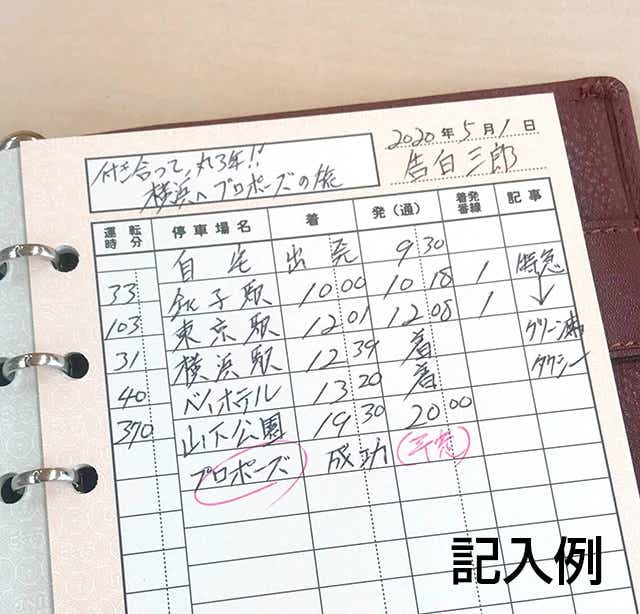 2020年5月1日
付き合って、丸3年!!
告白三郎
横浜へプロポーズの旅
運転時分 停車場名 着 発(通) 着発番線 記事
自宅 出発 9 30
33 銚子駅 10 00 10 18 1 特急
103 東京駅 12 01 12 08 1 ↓
31 横浜駅 12 39 着 グリーン車
40 ベイホテル 13 20 着 タクシー
370 山下公園 19 30 20 00
プロポーズ 成功 (予想)
記入例